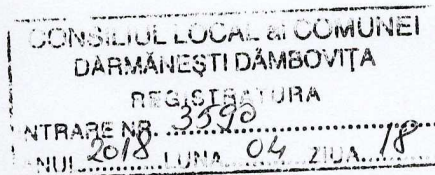 CONSILIUL LOCAL al COMUNEI
DĂRMĂNEȘTI DÂMBOVIȚA
REGISTRATURA
NTRARE NR. 3590
NUL 2018 LUNA 04 ZIUA 18